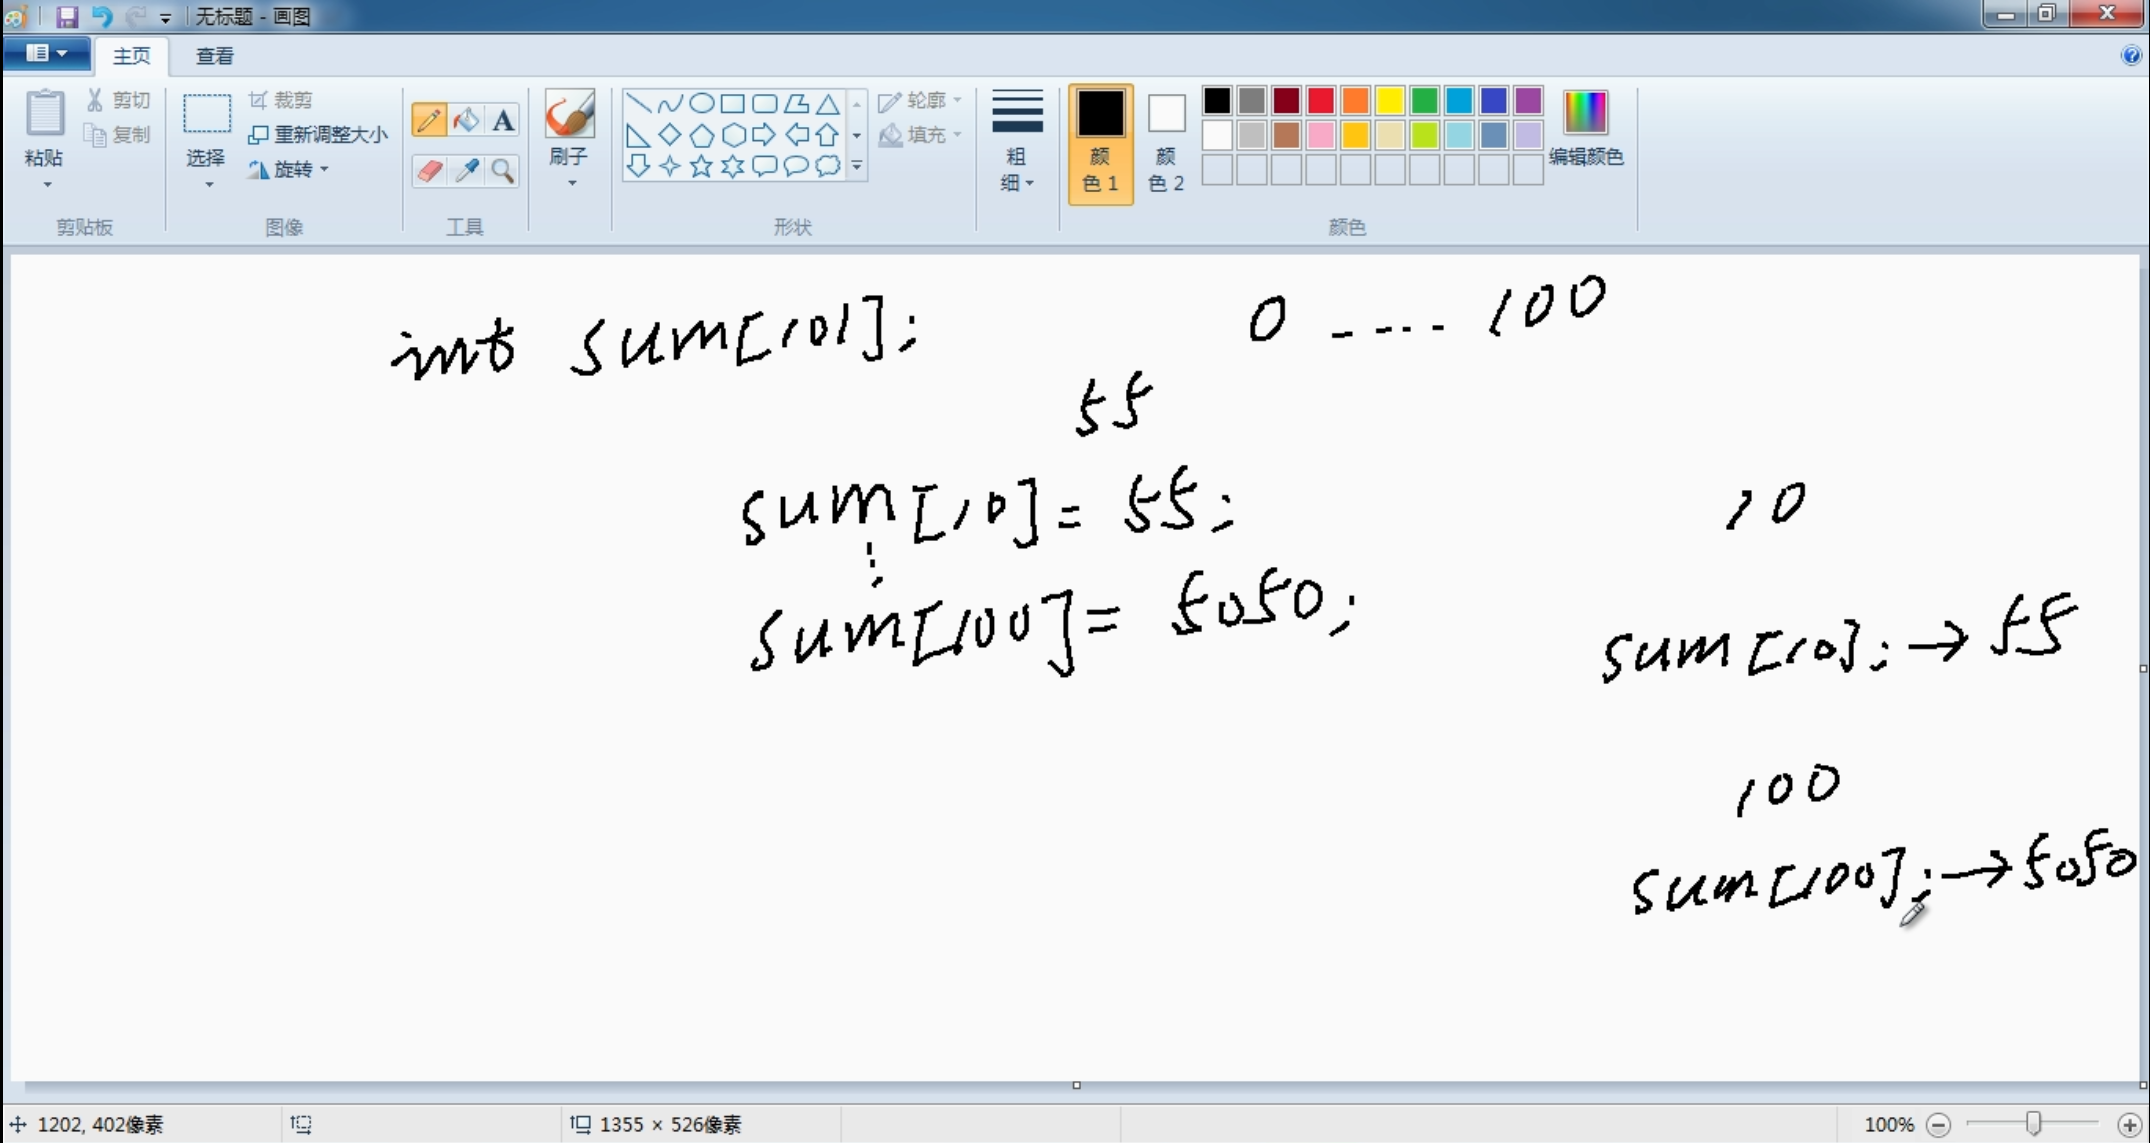 无标题 - 画图
主页 查看
粘贴 剪切 复制 选择 裁剪 重新调整大小 旋转 刷子 轮廓 填充 粗细 颜色 1 颜色 2 编辑颜色
剪贴板 图像 工具 形状 颜色
int sum[101]; 0 ---- 100
55
sum[10] = 55; 10
⋮
sum[100] = 5050; sum[10]; → 55
100
sum[100]; → 5050
1202, 402像素 1355 × 526像素 100%